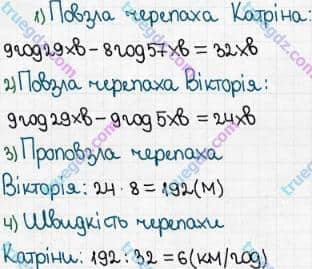 1) Повзла черепаха Катріна:
9год29хв-8год57хв=32хв
2) Повзла черепаха Вікторія:
9год29хв-9год5хв=24хв
3) Проповзла черепаха
Вікторія: 24·8=192(м)
4) Швидкість черепахи
Катріни: 192:32=6(км/год)